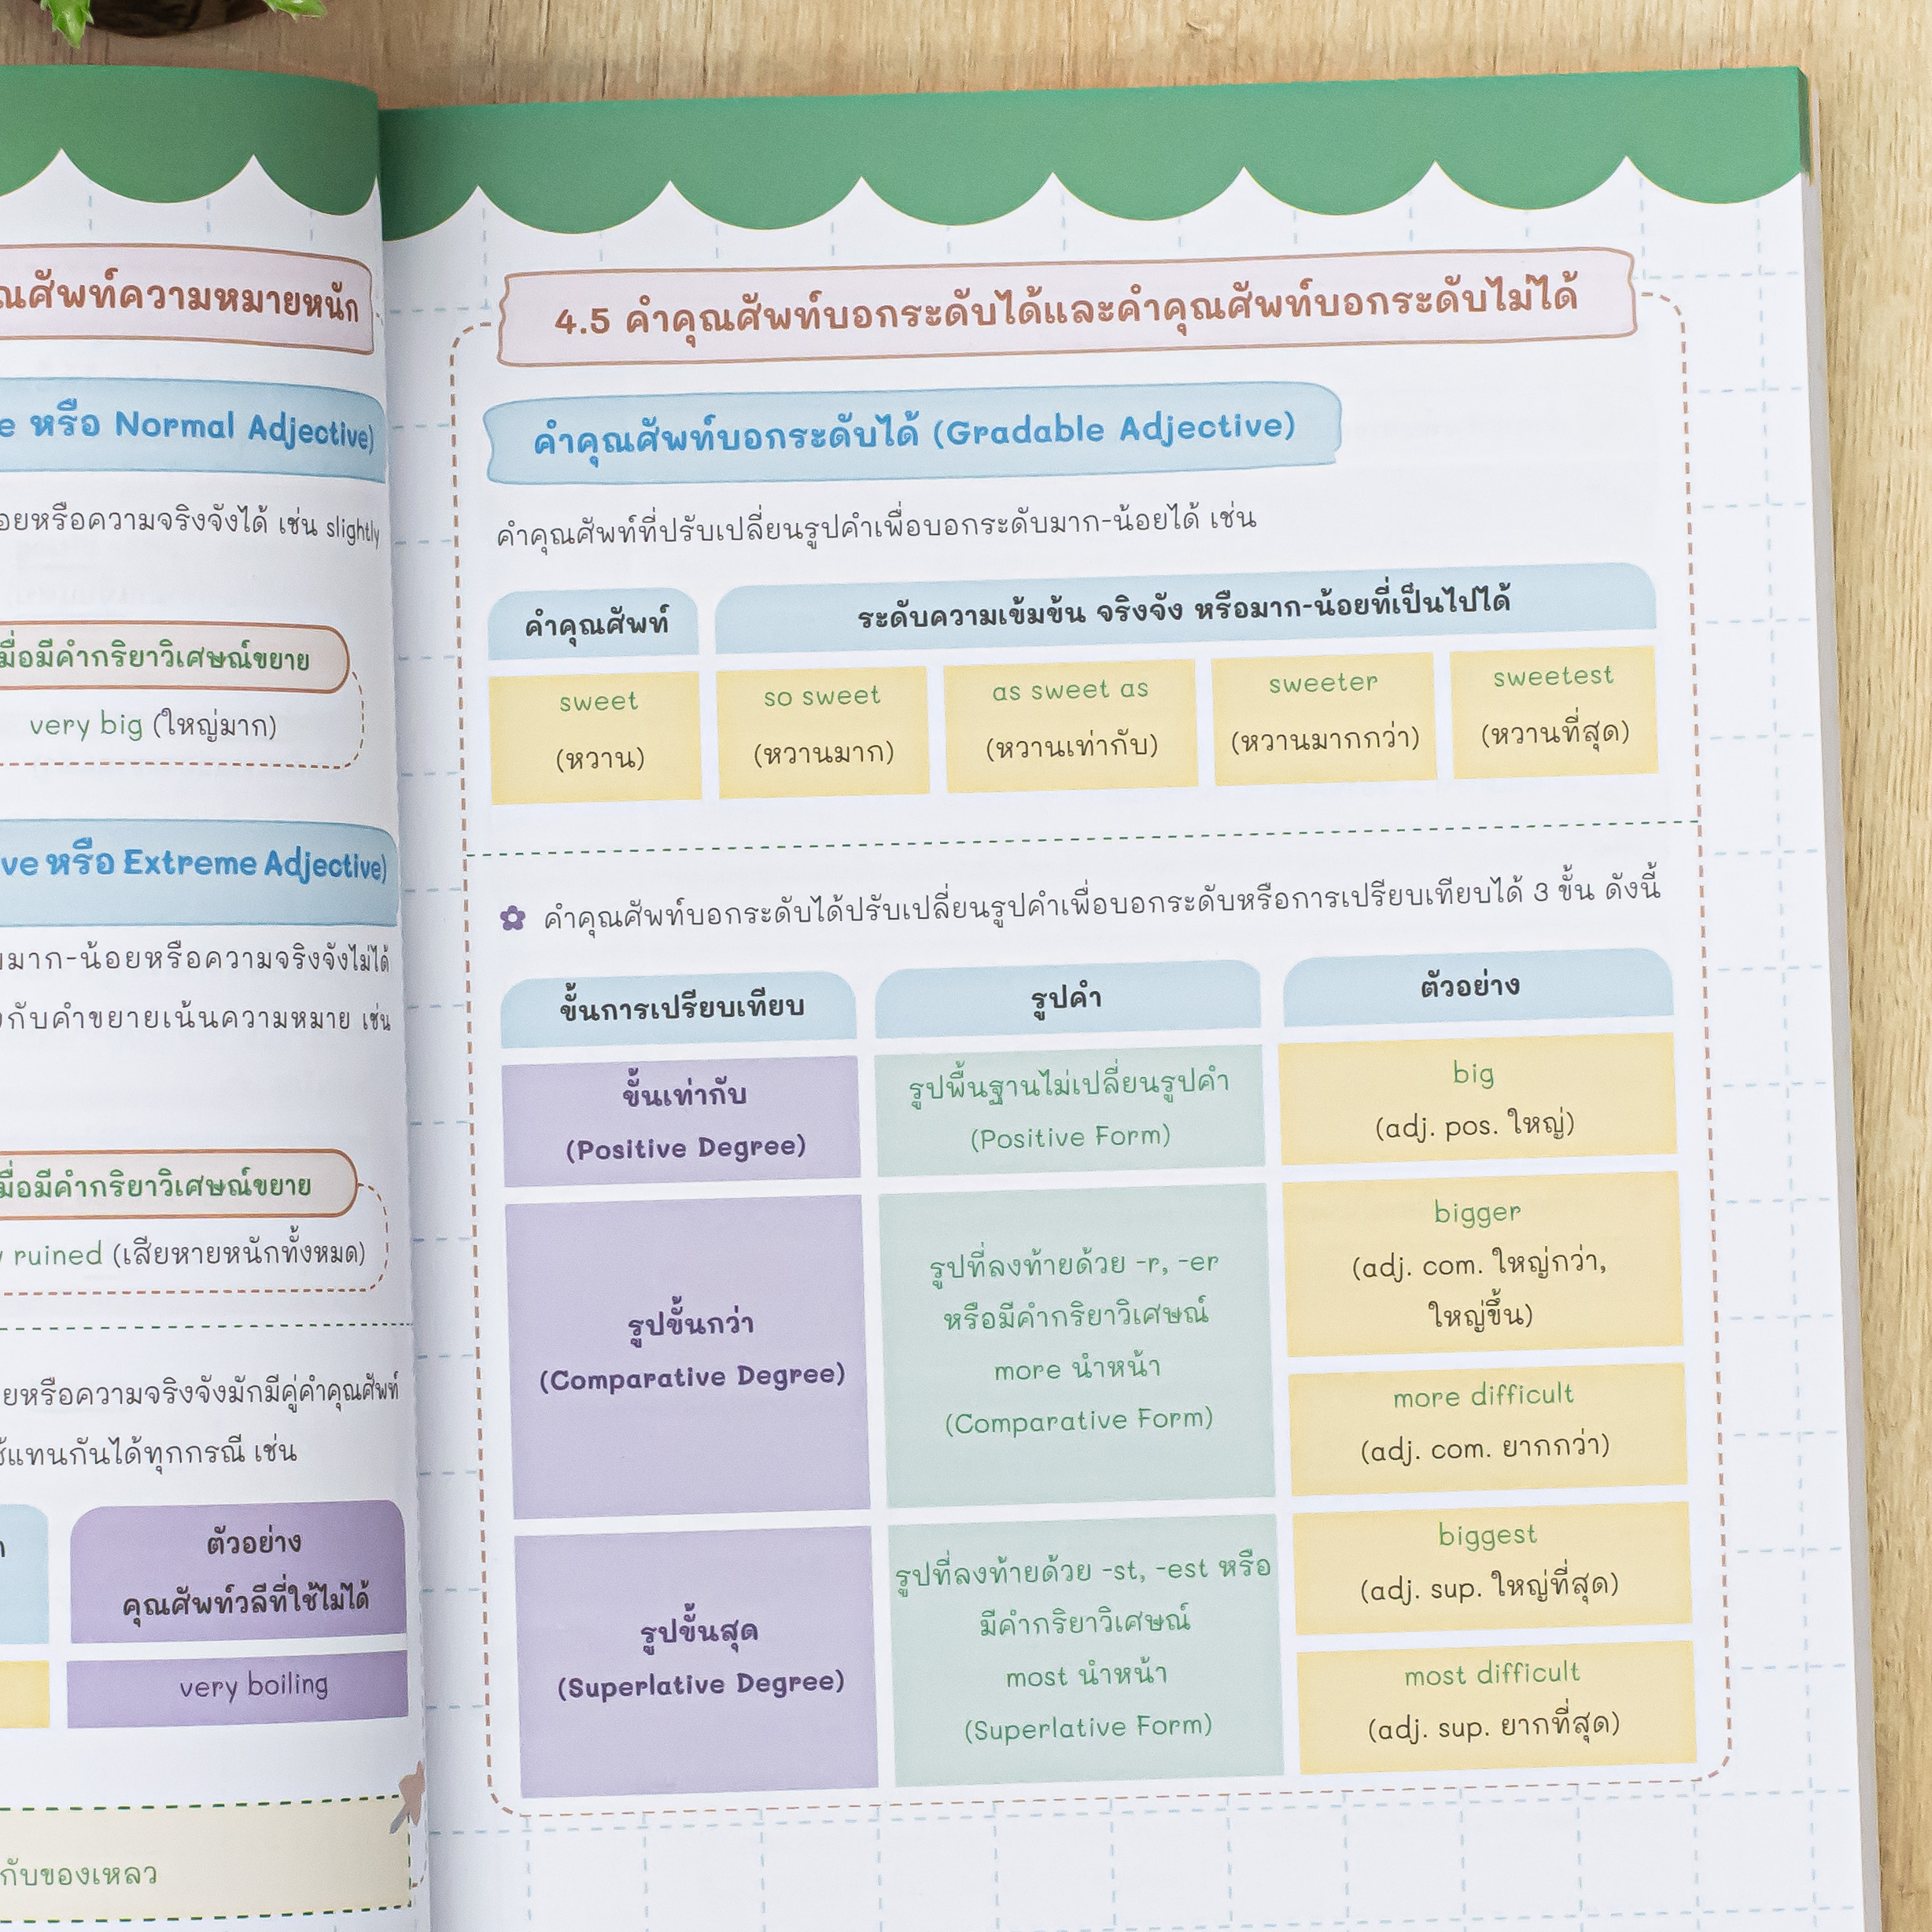 ณศัพท์ความหมายหนัก
หรือ Normal Adjective)
อยหรือความจริงจังได้ เช่น slightly
มื่อมีคำกริยาวิเศษณ์ขยาย
very big (ใหญ่มาก)
ve หรือ Extreme Adjective)
มาก-น้อยหรือความจริงจังไม่ได้
กับคำขยายเน้นความหมาย เช่น
มื่อมีคำกริยาวิเศษณ์ขยาย
ruined (เสียหายหนักทั้งหมด)
ยหรือความจริงจังมักมีคู่คำคุณศัพท์
ช้แทนกันได้ทุกกรณี เช่น
ตัวอย่าง
คุณศัพท์วลีที่ใช้ไม่ได้
very boiling
กับของเหลว
4.5 คำคุณศัพท์บอกระดับได้และคำคุณศัพท์บอกระดับไม่ได้
คำคุณศัพท์บอกระดับได้ (Gradable Adjective)
คำคุณศัพท์ที่ปรับเปลี่ยนรูปคำเพื่อบอกระดับมาก-น้อยได้ เช่น
คำคุณศัพท์ ระดับความเข้มข้น จริงจัง หรือมาก-น้อยที่เป็นไปได้
sweet so sweet as sweet as sweeter sweetest
(หวาน) (หวานมาก) (หวานเท่ากับ) (หวานมากกว่า) (หวานที่สุด)
คำคุณศัพท์บอกระดับได้ปรับเปลี่ยนรูปคำเพื่อบอกระดับหรือการเปรียบเทียบได้ 3 ขั้น ดังนี้
ขั้นการเปรียบเทียบ รูปคำ ตัวอย่าง
ขั้นเท่ากับ
(Positive Degree)
รูปพื้นฐานไม่เปลี่ยนรูปคำ
(Positive Form)
big
(adj. pos. ใหญ่)
รูปขั้นกว่า
(Comparative Degree)
รูปที่ลงท้ายด้วย -r, -er
หรือมีคำกริยาวิเศษณ์
more นำหน้า
(Comparative Form)
bigger
(adj. com. ใหญ่กว่า,
ใหญ่ขึ้น)
more difficult
(adj. com. ยากกว่า)
รูปขั้นสุด
(Superlative Degree)
รูปที่ลงท้ายด้วย -st, -est หรือ
มีคำกริยาวิเศษณ์
most นำหน้า
(Superlative Form)
biggest
(adj. sup. ใหญ่ที่สุด)
most difficult
(adj. sup. ยากที่สุด)